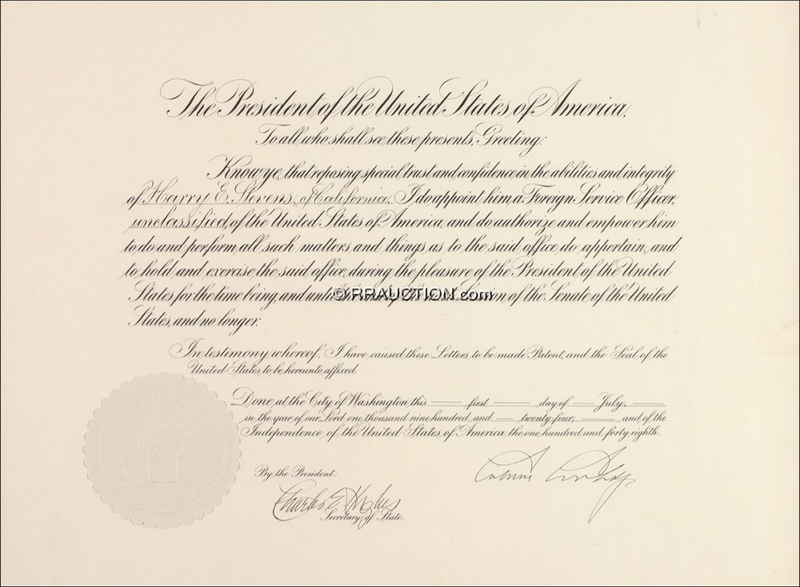 The President of the United States of America,
To all who shall see these presents, Greeting:
Know ye, that reposing special trust and confidence in the abilities and integrity
of Harry E. Stevens, of California, I do appoint him a Foreign Service Officer,
unclassified, of the United States of America, and do authorize and empower him
to do and perform all such matters and things as to the said office do appertain, and
to hold and exercise the said office, during the pleasure of the President of the United
States for the time being, and until of the Senate of the United
© RRAUCTION.com
States, and no longer.
In testimony whereof, I have caused these Letters to be made Patent, and the Seal of the
United States to be hereunto affixed.
Done, at the City of Washington, this first day of July,
in the year of our Lord one thousand nine hundred and twenty-four, and of the
Independence of the United States of America the one hundred and forty-eighth.
By the President:
Calvin Coolidge
Charles E. Hughes
Secretary of State.